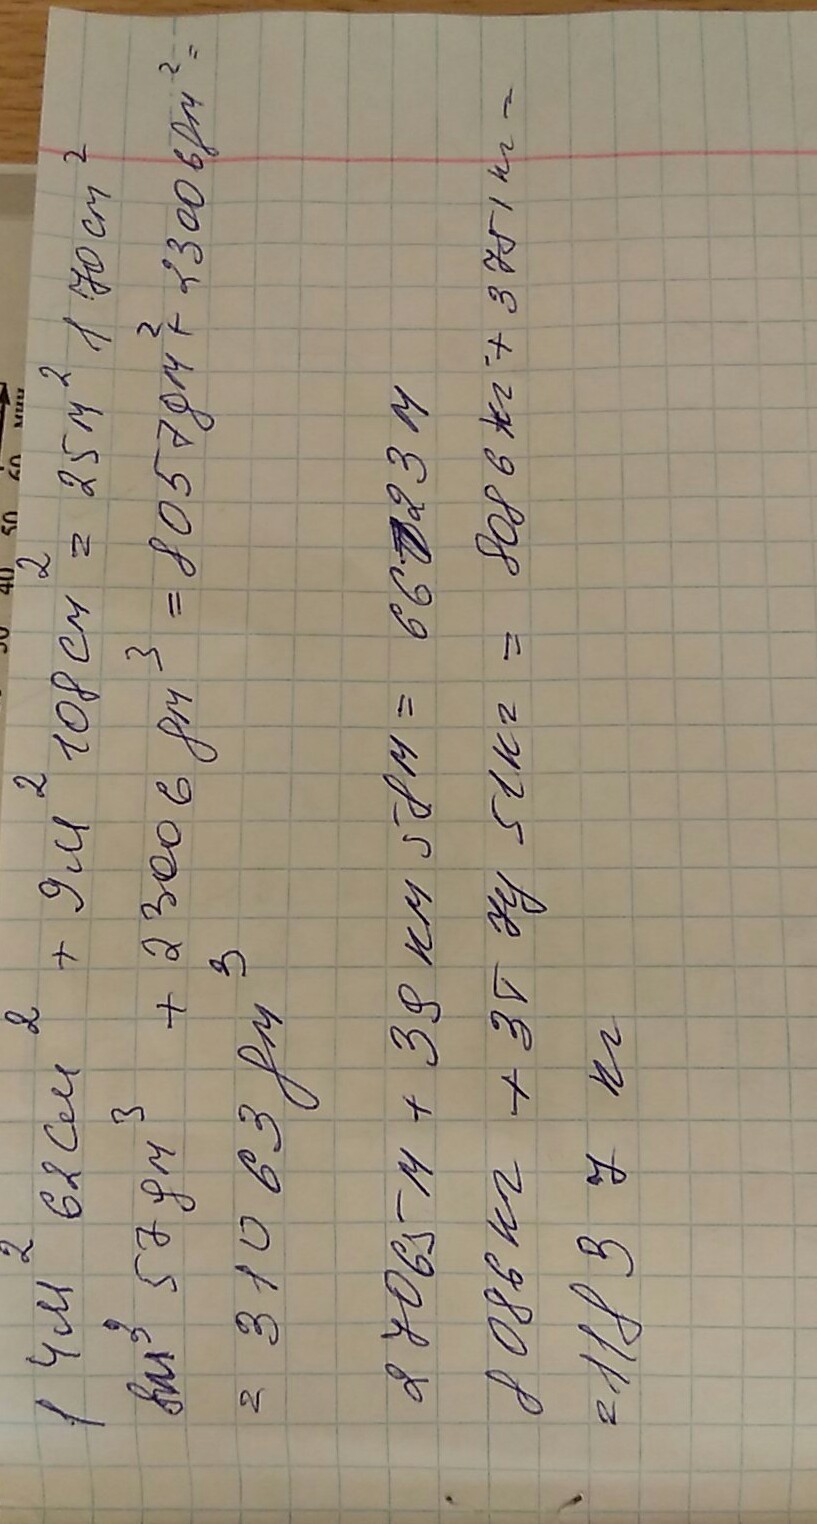 14м² 62см² + 9м² 108см² = 25м² 170см²
8м³ 57дм³ + 23006дм³ = 8057дм² + 23006дм² =
= 31063дм³
27065м + 39км 58м = 66123м
8086кг + 3т 7ц 51кг = 8086кг + 3751кг =
= 11837кг
40 50 60 мин